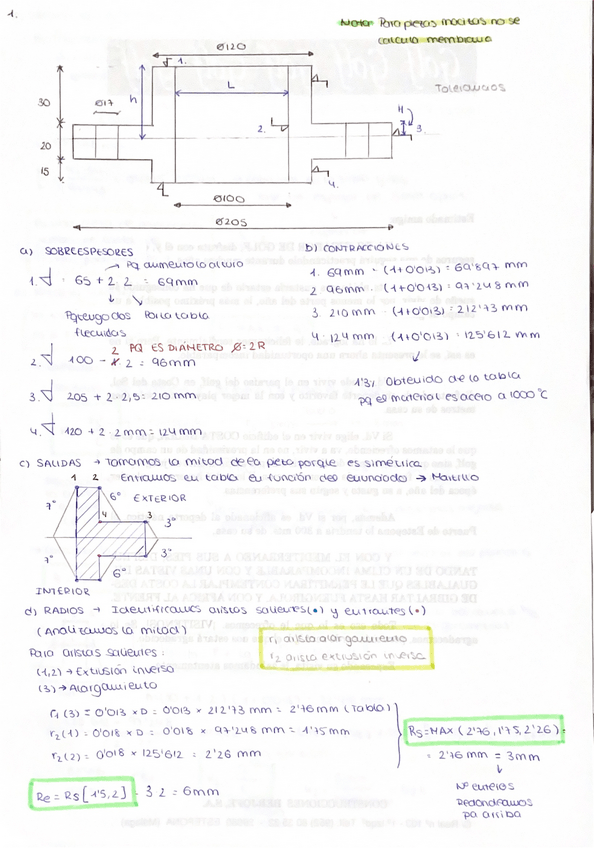 1.
Nota: Para piezas macizas no se
calcula membrana
Ø120
1.
Tolerancias
30
Ø17
h
L
H
2.
3.
20
15
4.
Ø100
Ø205
a) SOBREESPESORES
b) CONTRACCIONES
→ Pq aumento la altura
1. 65 + 2 · 2 = 69mm
Pq tengo dos Por la tabla
flechitas
2. 100 - 2 · 2 = 96mm
2 PQ ES DIÁMETRO Ø=2R
3. 205 + 2 · 2,5 = 210 mm
4. 120 + 2 · 2 mm = 124mm
1. 69mm · (1+0'013) = 69'897 mm
2. 96mm · (1+0'013) = 97'248 mm
3. 210 mm · (1+0'013) = 212'73 mm
4. 124 mm (1+0'013) = 125'612 mm
1'3% Obtenido de la tabla
pq el material es acero a 1000°C
c) SALIDAS → Tomamos la mitad de la pieza porque es simétrica
Entramos en tabla en función del enunciado → Martillo
1 2
6° EXTERIOR
7°
4
3
3°
3°
7°
6°
INTERIOR
d) RADIOS → Identificamos aristas salientes (•) y entrantes (•)
(Analizamos la mitad)
r₁ arista alargamiento
r₂ arista extrusión inversa
Para aristas salientes:
(1,2) → Extrusión inversa
(3) → Alargamiento
r₁ (3) = 0'013 × D = 0'013 × 212'73 mm = 2'76 mm (tabla)
r₂(1) = 0'018 × D = 0'018 × 97'248 mm = 1'75 mm
r₂(2) = 0'018 × 125'612 = 2'26 mm
Rs = MAX (2'76, 1'75, 2'26) =
= 2'76 mm = 3mm
Nº enteros
Redondeamos
pa arriba
Re = Rs [1'5, 2] · 3 2 = 6mm